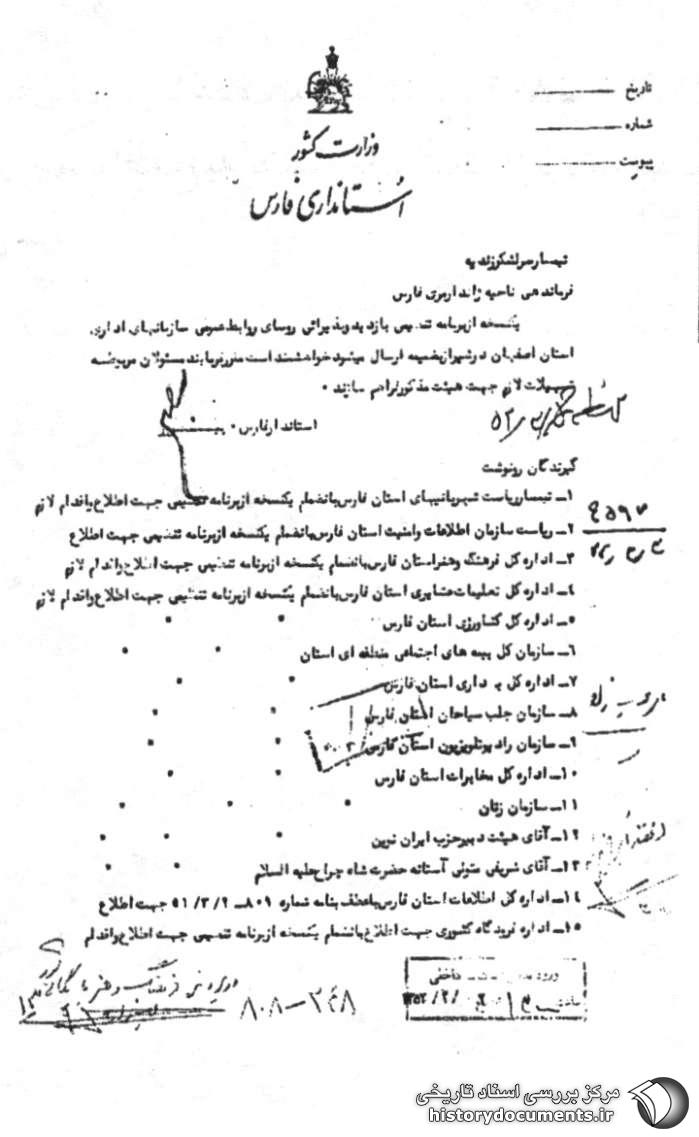 تاریخ
شماره
پیوست
وزارت کشور
استانداری فارس
تیمسار سرلشکر زندیه
فرماندهی ناحیه ژاندارمری فارس
یکنسخه از برنامه تنظیمی بازدید و پذیرائی روسای روابط عمومی سازمانهای اداری
استان اصفهان در شیراز بضمیمه ارسال میشود خواهشمند است مقرر فرمایند مسئولان مربوطه
تسهیلات لازم جهت هیئت مذکور فراهم سازند .
استاندار فارس .
گیرندگان رونوشت
۱ــ تیمسار ریاست شهربانیهای استان فارس بانضمام یکنسخه از برنامه تنظیمی جهت اطلاع و اقدام لازم
۲ــ ریاست سازمان اطلاعات و امنیت استان فارس بانضمام یکنسخه از برنامه تنظیمی جهت اطلاع
۳ــ اداره کل فرهنگ و هنر استان فارس بانضمام یکنسخه از برنامه تنظیمی جهت اطلاع و اقدام لازم
۴ــ اداره کل تعلیمات عشایری استان فارس بانضمام یکنسخه از برنامه تنظیمی جهت اطلاع و اقدام لازم
۵ــ اداره کل کشاورزی استان فارس
۶ــ سازمان کل بیمه های اجتماعی منطقه ای استان
۷ــ اداره کل بهداری استان فارس
۸ــ سازمان جلب سیاحان استان فارس
۹ــ سازمان رادیو تلویزیون استان فارس
۱۰ــ اداره کل مخابرات استان فارس
۱۱ــ سازمان زنان
۱۲ــ آقای هیئت دبیر حزب ایران نوین
۱۳ــ آقای شریفی متولی آستانه حضرت شاه چراغ علیه السلام
۱۴ــ اداره کل اطلاعات استان فارس باعطف بنامه شماره ۸۰۹ــ ۵۱/۳/۲ جهت اطلاع
۱۵ــ اداره فرودگاه کشوری جهت اطلاع بانضمام یکنسخه از برنامه تنظیمی جهت اطلاع و اقدام
۳۴۸ــ۸۰۸
مرکز بررسی اسناد تاریخی
historydocuments.ir